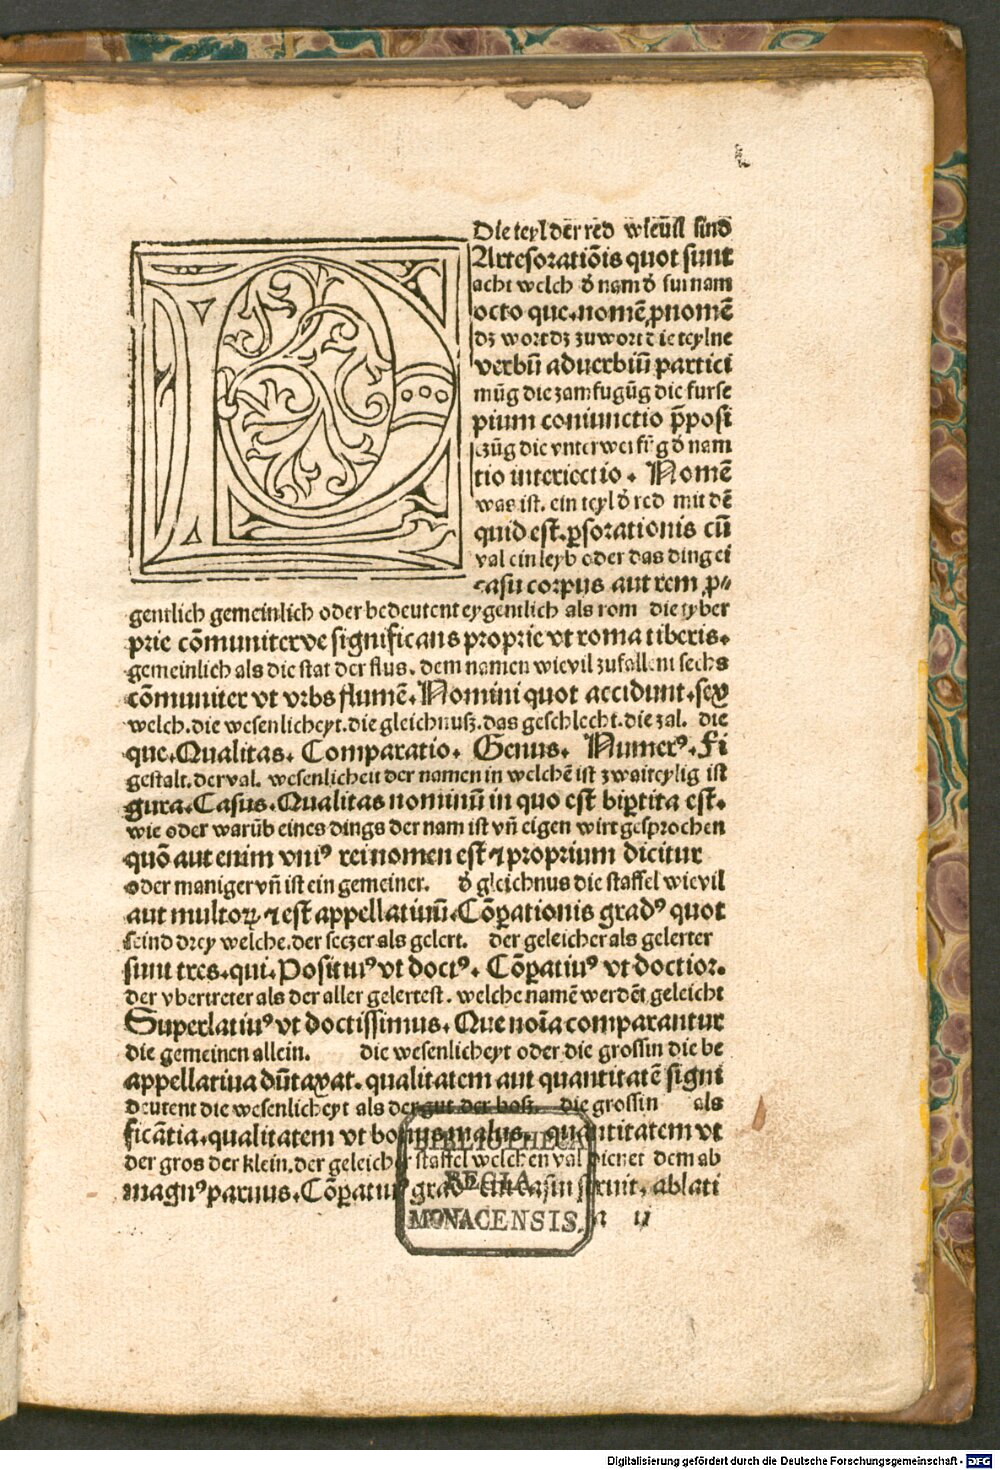 Die teyl der red wieuil sind
Artesoratiōis quot sunt
acht welch d̕ nam d̕ fur nam
octo que.nomē,pnomē
dz wort dz zuwort die teylne
verbū aduerbiū partici
mūg die zamfugūg die furse
pium coniunctio p̄posi
czūg die vnterweisūg d̕ nam
tio interiectio. Nomē
was ist. ein teyl d̕ red mit dē
quid est.ꝑsorationis cū
val ein leyb oder das ding ei
casu corpus aut rem ,p⸗
gentlich gemeinlich oder bedeutent eygentlich als rom die tyber
prie cōmuniterve significans proprie vt roma tiberis.
gemeinlich als die stat der flus. dem namen wievil zufallent sechs
cōmuniter vt vrbs flumē.Nomini quot accidunt.sex
welch.die wesenlicheyt.die gleichnuß.das geschlecht.die zal. die
que.Qualitas. Comparatio. Genus. Numerꝰ.Fi
gestalt.der val. wesenlicheit der namen in welchē ist zwaiteylig ist
gura.Casus.Qualitas nominū in quo est biꝑtita est.
wie oder warūb eines dings der nam ist vn̄ eigen wirt gesprochen
quō aut enim vniꝰ rei nomen est ⁊ proprium dicitur
oder maniger vn̄ ist ein gemeiner. d̕ gleichnus die staffel wievil
aut multoꝝ ⁊ est appellatiuū.Cōꝑationis gradꝰ quot
seind drey welche.der seczer als gelert. der geleicher als gelerter
sunt tres.qui.Positiuꝰ vt doctꝰ. Cōꝑatiuꝰ vt doctior.
der vbertreter als der aller gelertest. welche namē werdēt geleicht
Superlatiuꝰ vt doctissimus. Que noīa comparantur
die gemeinen allein. die wesenlicheyt oder die grossin die be
appellatiua dūtaxat.qualitatem aut quantitatē signi
deutent die wesenlicheyt als der gut der boß. die grossin als
ficātia.qualitatem vt bonus malus. quantitatem vt
der gros der klein.der geleicher staffel welchen val dienet dem ab
magnꝰ paruus.Cōꝑatiuꝰ gradꝰ cui casui seruit, ablati
a ij
BIBLIOTHECA
REGIA
MONACENSIS.
Digitalisierung gefördert durch die Deutsche Forschungsgemeinschaft - DFG